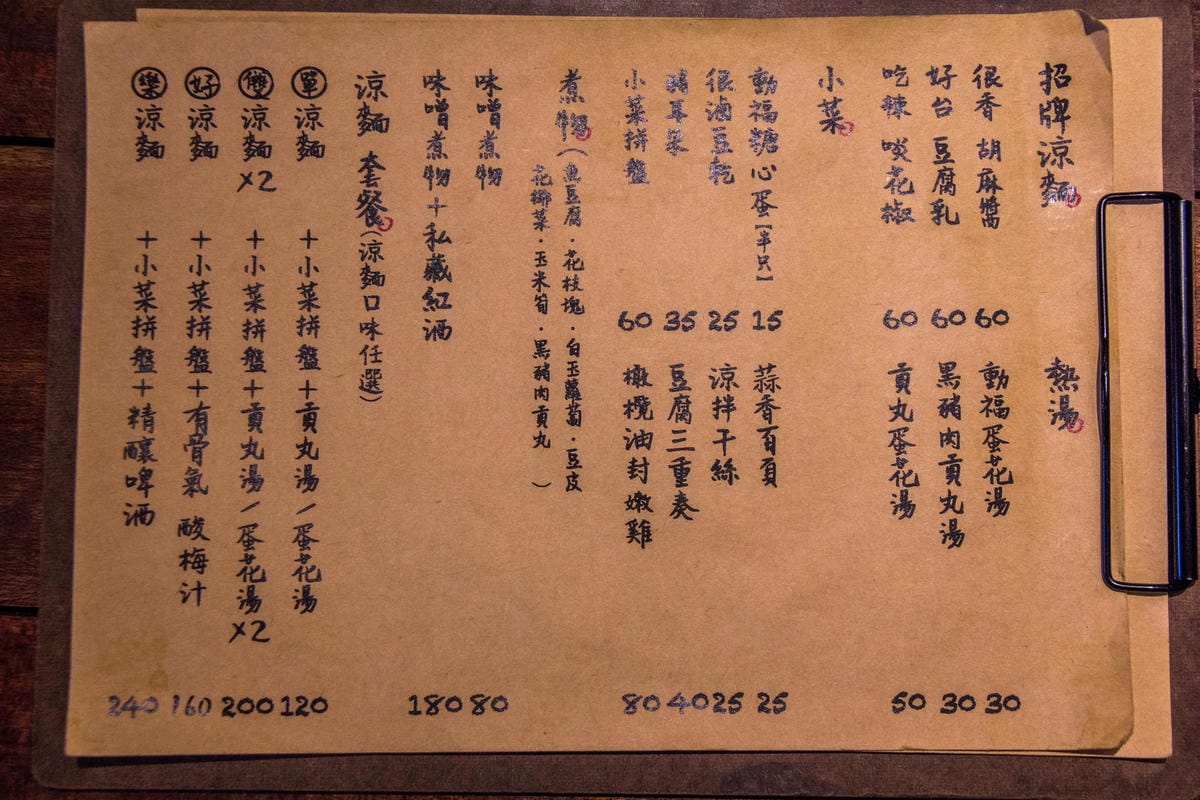 招牌涼麵 熱湯
很香 胡麻醬 60 動福蛋花湯 30
好台 豆腐乳 60 黑豬肉貢丸湯 30
吃辣 啖花椒 60 貢丸蛋花湯 50
小菜
動福糖心蛋【半只】 15 蒜香百頁 25
很滷豆乾 25 涼拌干絲 25
豬耳朵 35 豆腐三重奏 40
小菜拼盤 60 橄欖油封嫩雞 80
煮物(魚豆腐・花枝塊・白玉蘿蔔・豆皮
花椰菜・玉米筍・黑豬肉貢丸)
味噌煮物 80
味噌煮物+私藏紅酒 180
涼麵 套餐(涼麵口味任選)
單涼麵 +小菜拼盤+貢丸湯/蛋花湯 120
雙涼麵x2 +小菜拼盤+貢丸湯/蛋花湯x2 200
好涼麵 +小菜拼盤+有骨氣 酸梅汁 160
樂涼麵 +小菜拼盤+精釀啤酒 240